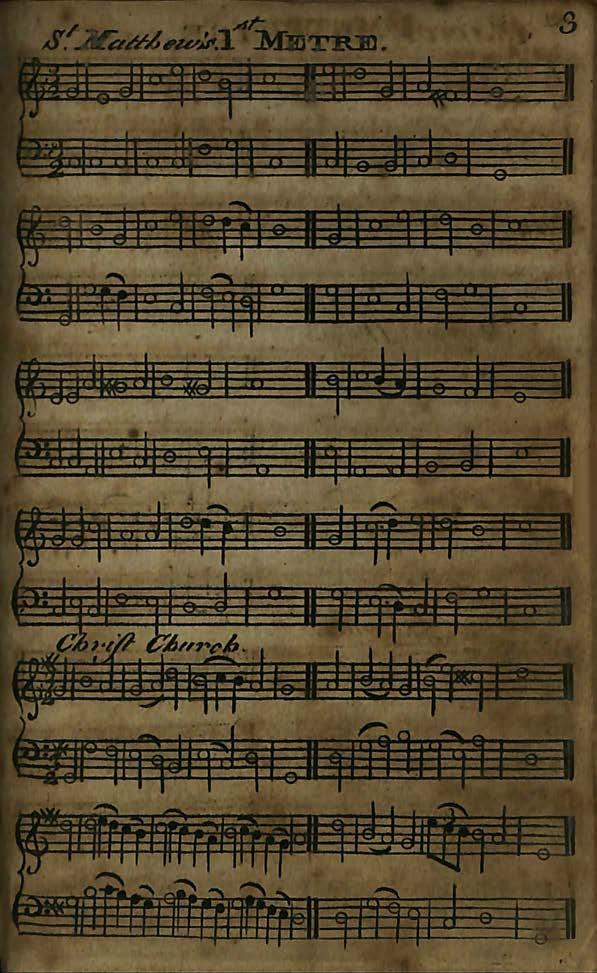 St. Matthew's. 1st METRE.
3
Chriſt Church.